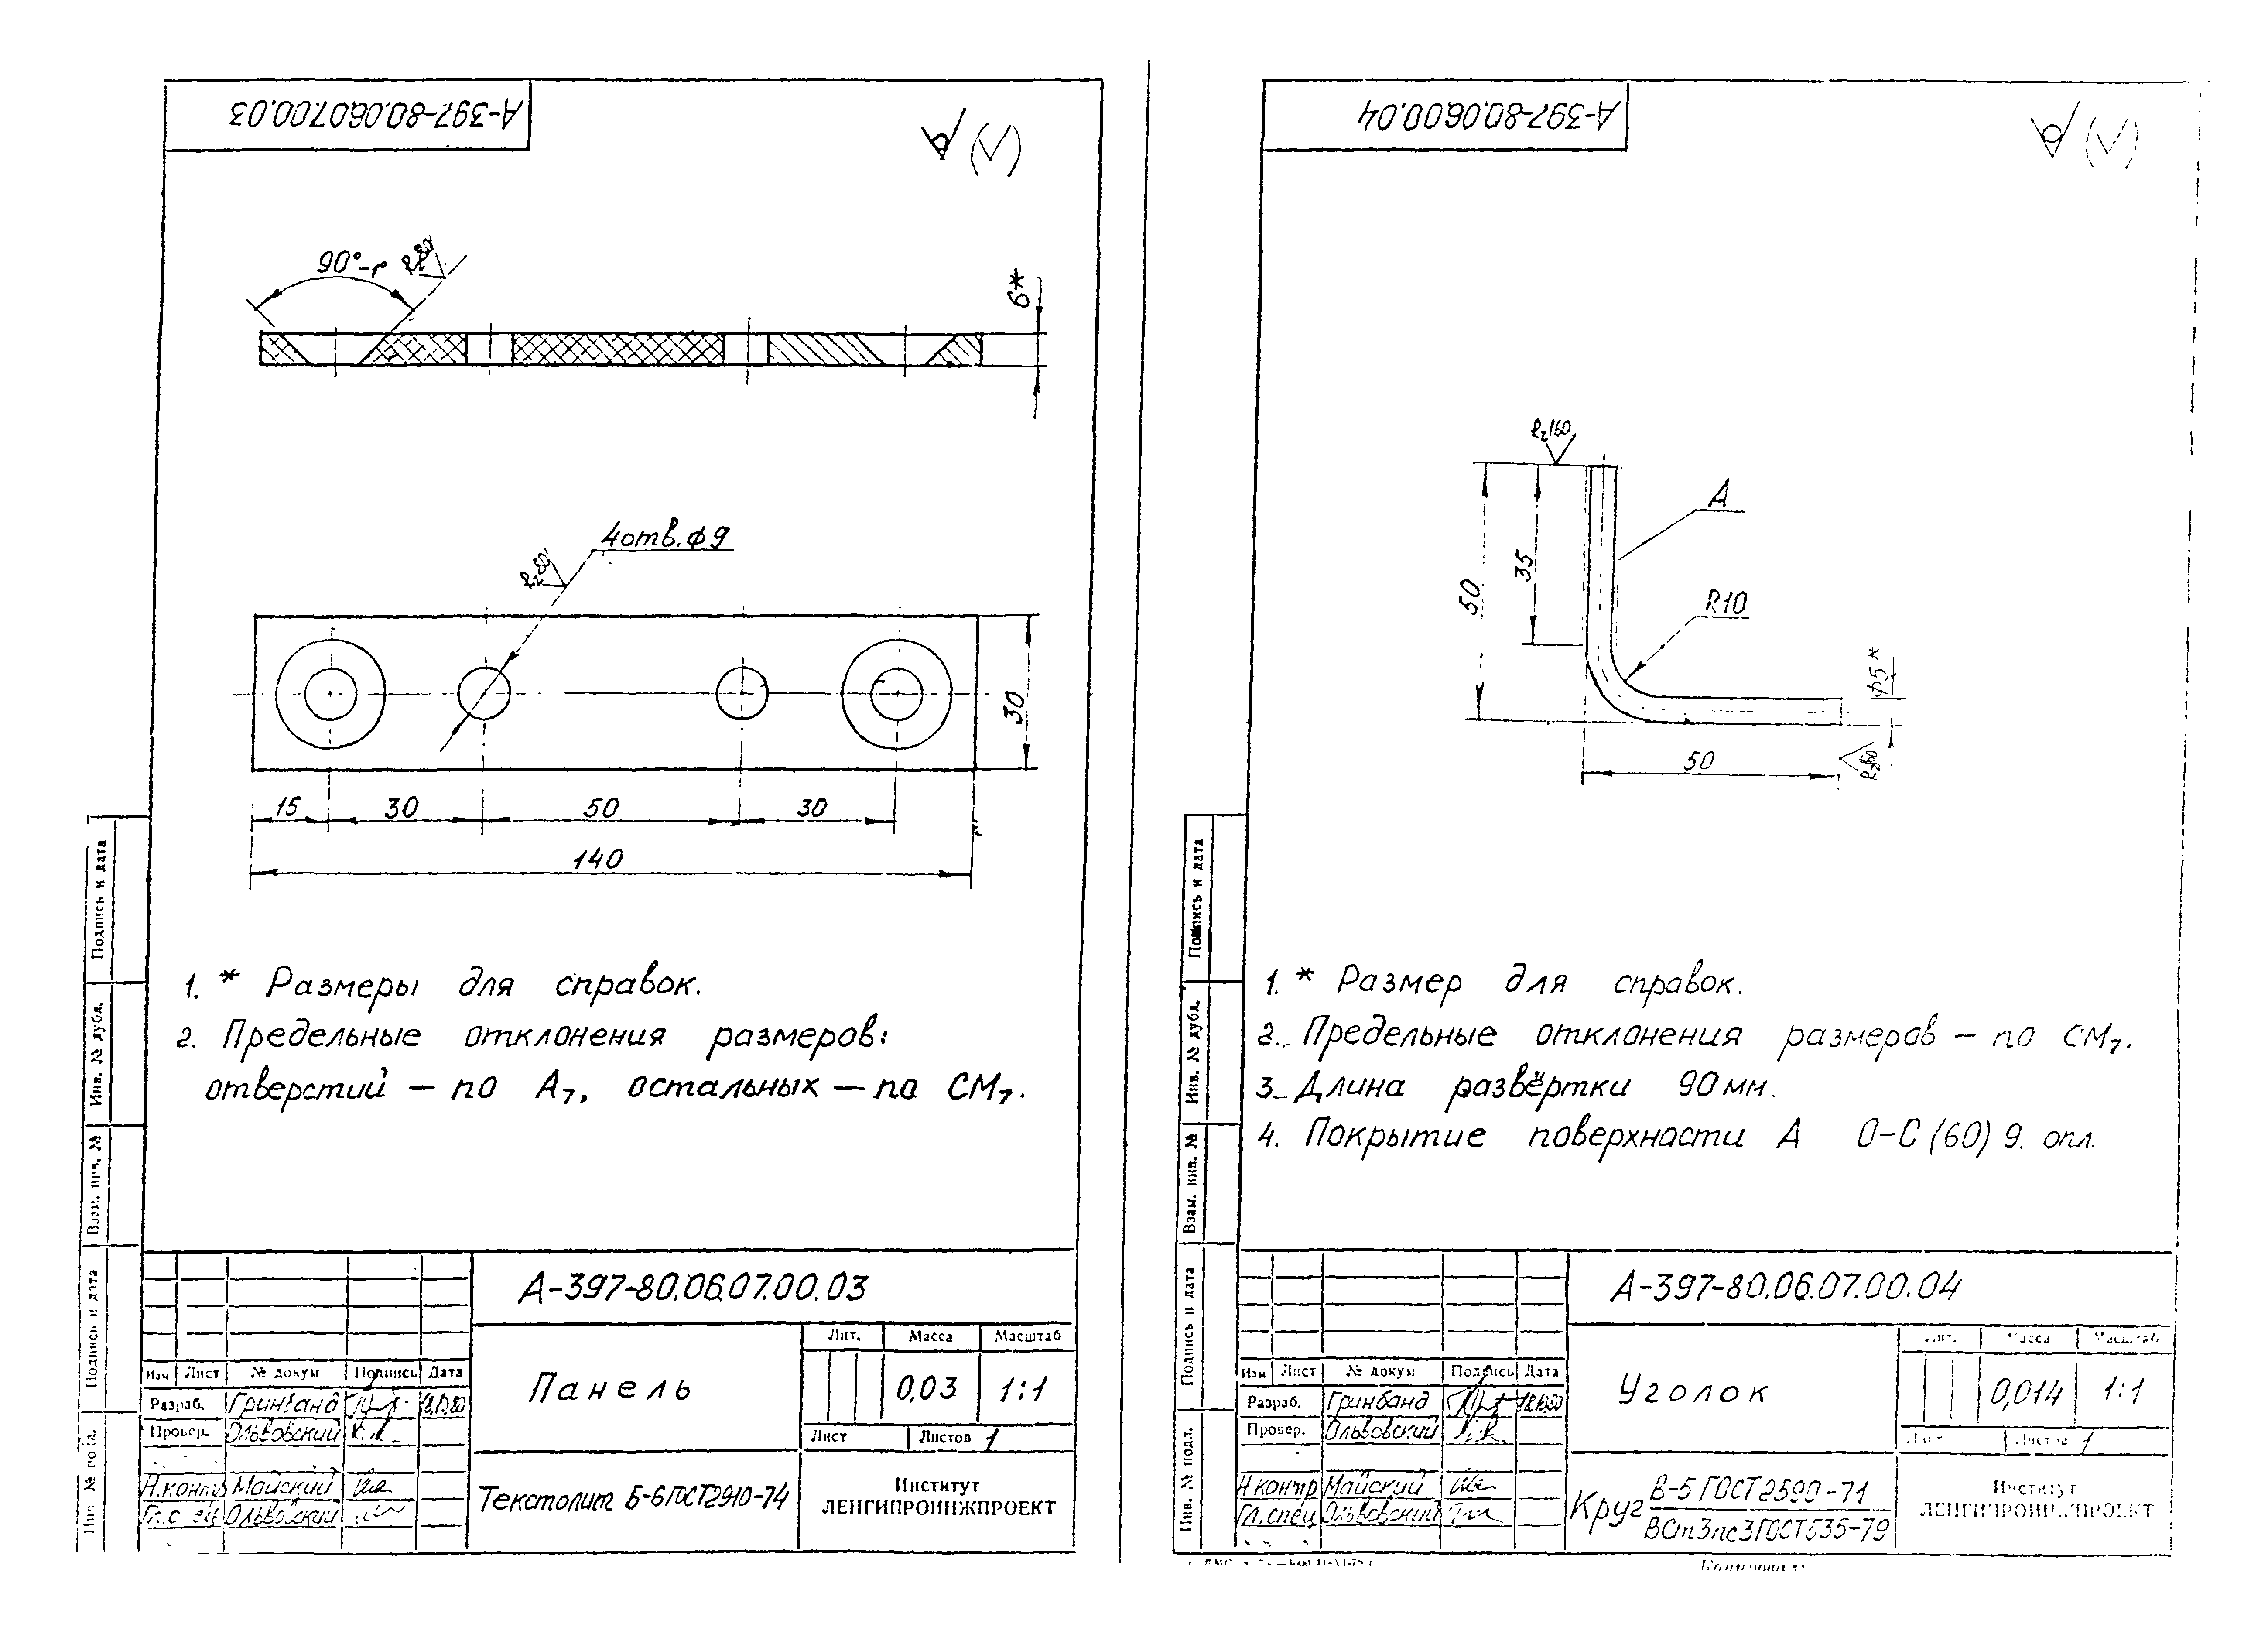 А-397-80.06.07.00.03
90°-1°
Rz80
6*
4отв.ф9
Rz80
30
15
30
50
30
140
1. * Размеры для справок.
2. Предельные отклонения размеров:
отверстий – по А7, остальных – по СМ7.
Подпись и дата
Инв. № дубл.
Взам. инв. №
Подпись и дата
Инв. № подл.
А-397-80.06.07.00.03
Панель
Лит.
Масса
Масштаб
0,03
1:1
Лист
Листов 1
Изм
Лист
№ докум
Подпись
Дата
Разраб.
Гринбанд
18.10.80
Провер.
Ольвовский
Н.контр
Майский
Гл.спец
Ольвовский
Текстолит Б-6 ГОСТ 2910-74
Институт
ЛЕНГИПРОИНЖПРОЕКТ
А-397-80.06.00.04
Rz160
А
50
35
R10
ф5*
50
Rz160
1. * Размер для справок.
2. Предельные отклонения размеров – по СМ7.
3. Длина развёртки 90мм.
4. Покрытие поверхности А О-С(60)9. опл.
Подпись и дата
Инв. № дубл.
Взам. инв. №
Подпись и дата
Инв. № подл.
А-397-80.06.07.00.04
Уголок
Лит.
Масса
Масштаб
0,014
1:1
Лист
Листов 1
Изм
Лист
№ докум
Подпись
Дата
Разраб.
Гринбанд
18.10.80
Провер.
Ольвовский
Н контр
Майский
Гл.спец
Ольвовский
Круг
В-5 ГОСТ 2590-71
ВСт3пс3 ГОСТ 535-79
Институт
ЛЕНГИПРОИНЖПРОЕКТ
Копировал: